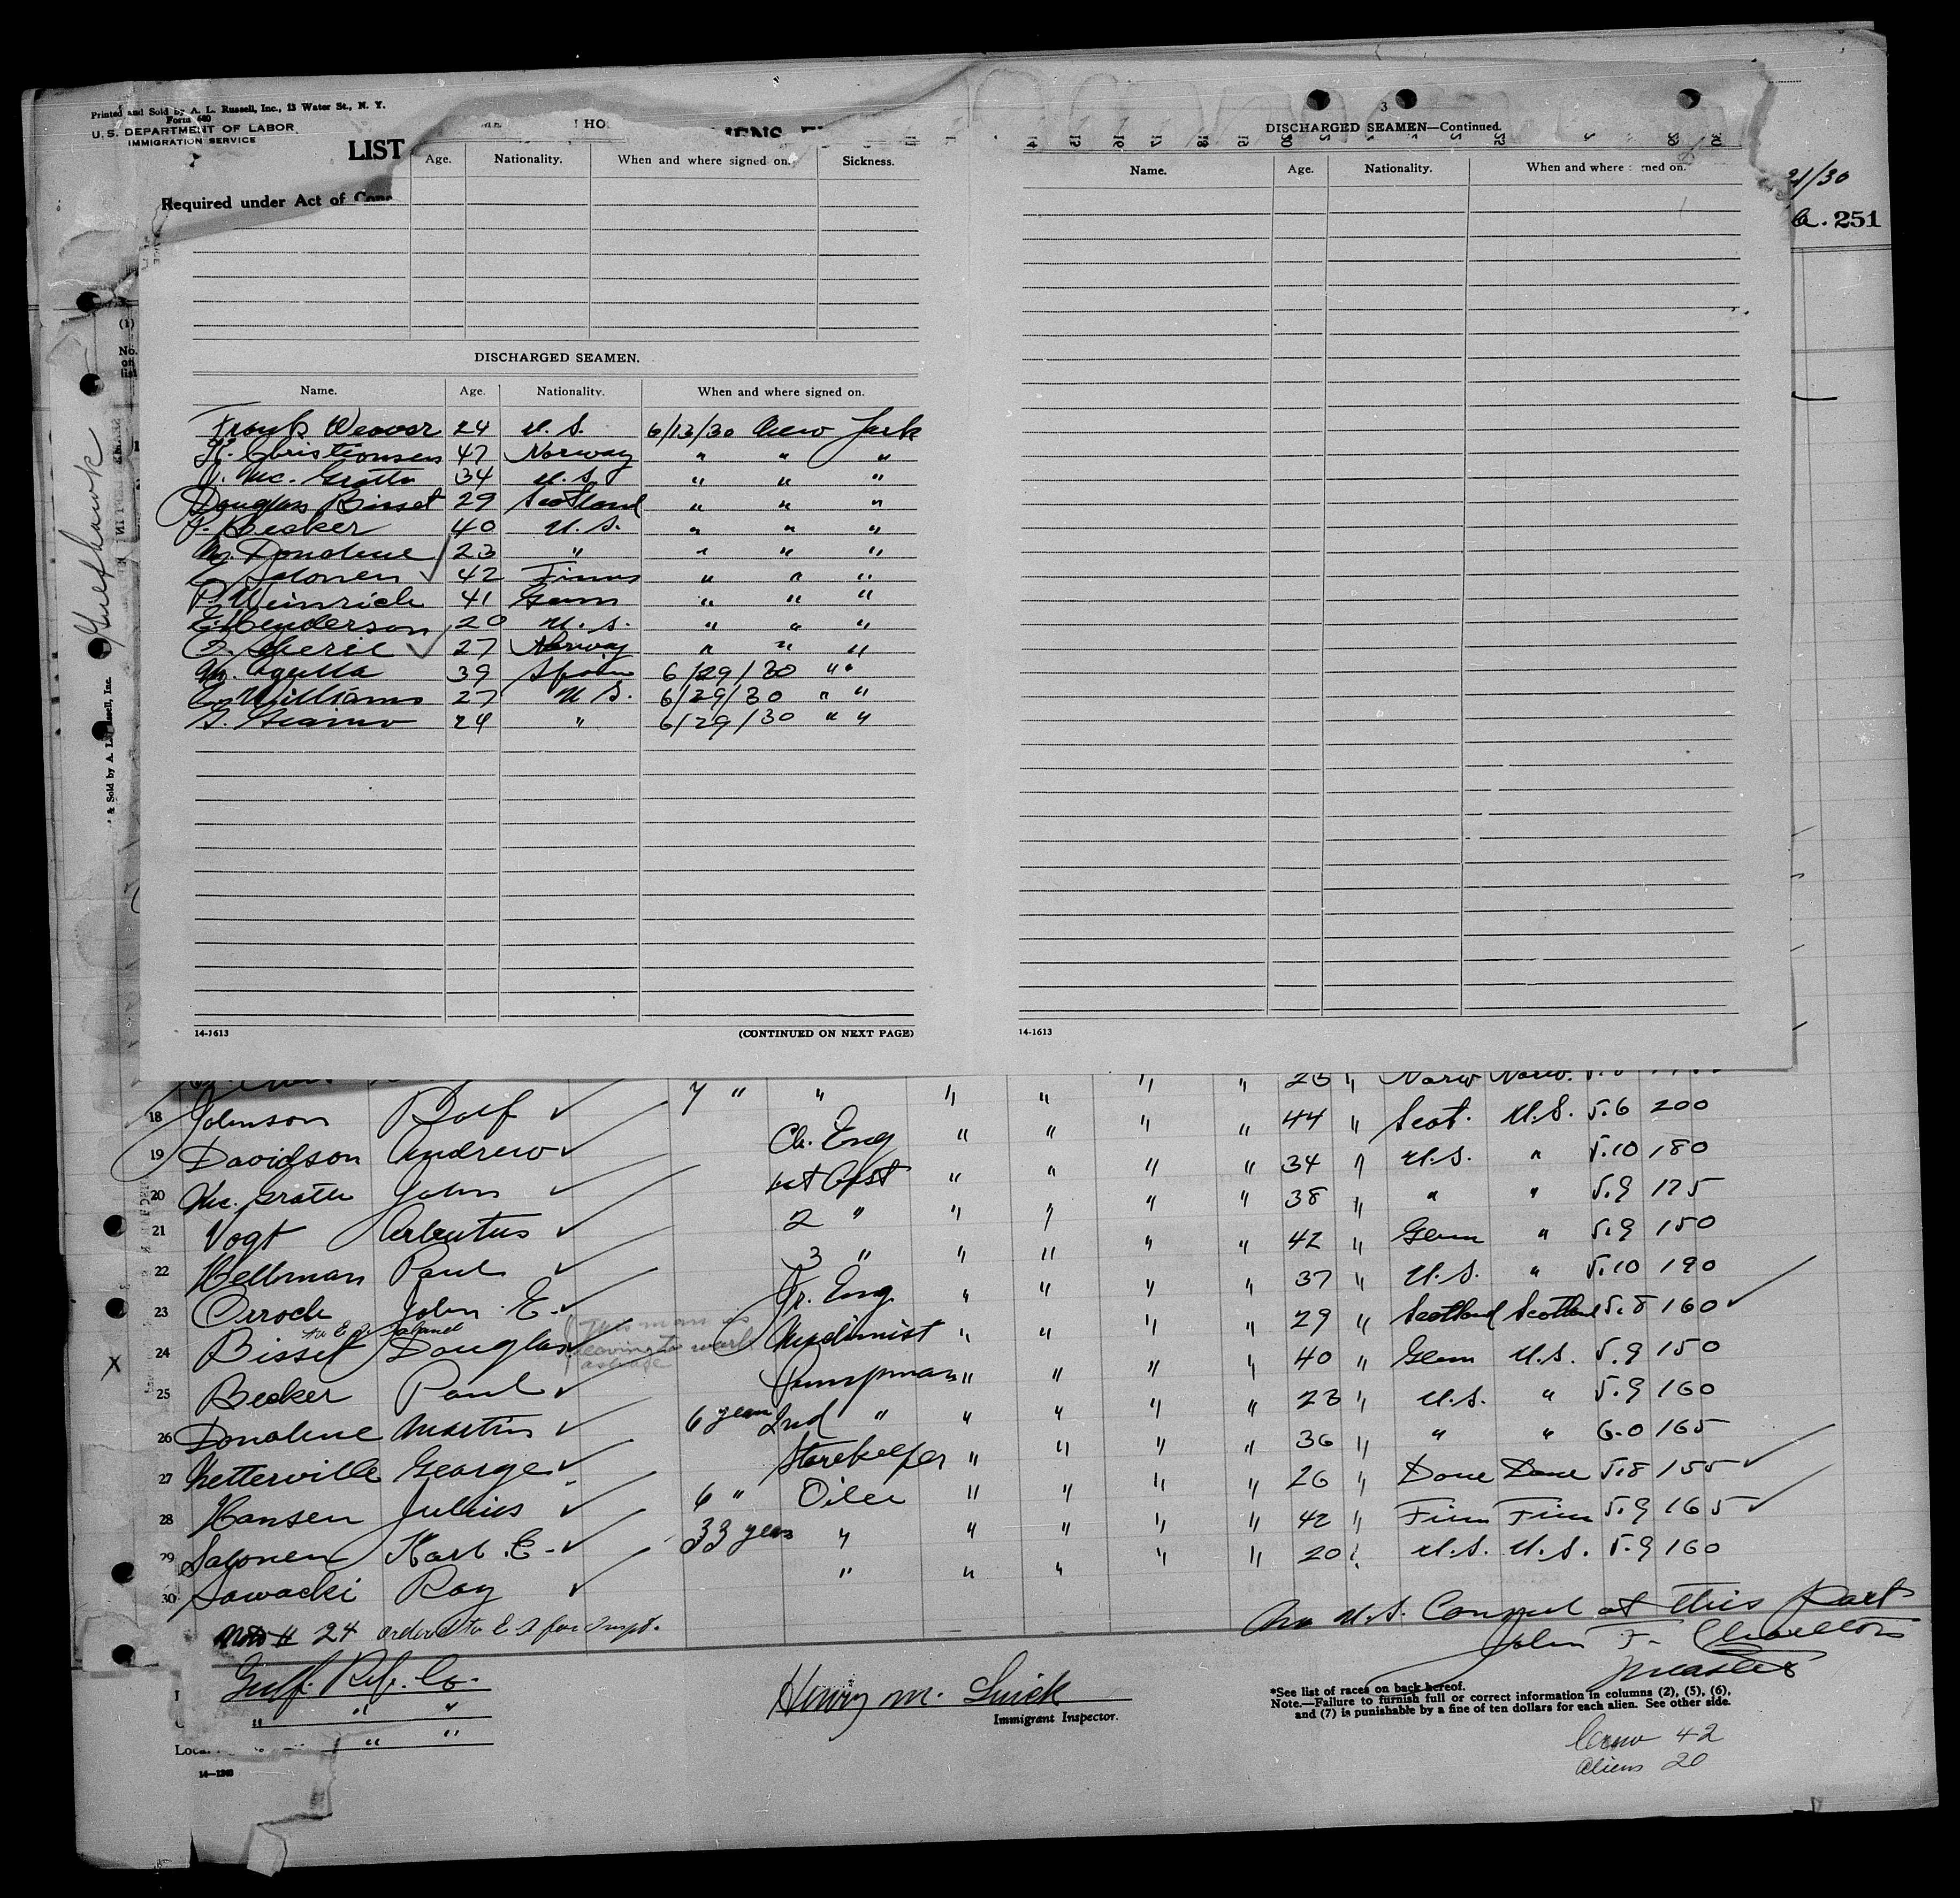 Printed and Sold by A. L. Russell, Inc., 13 Water St., N. Y.
Form 680
U. S. DEPARTMENT OF LABOR
IMMIGRATION SERVICE
LIST
Required under Act of Cong
Age. Nationality. When and where signed on. Sickness.
DISCHARGED SEAMEN.
Name. Age. Nationality. When and where signed on.
Frank Weaver 24 U. S. 6/13/30 New York
K. Christionsen 47 Norway " " "
J. Mc. Grath 34 U. S. " " "
Douglas Bisset 29 Scotland " " "
P. Becker 40 U. S. " " "
M. Donahue 23 " " " "
Salonen 42 Finns " " "
P. Weinrich 41 Germ " " "
E. Henderson 20 U. S. " " "
27 Norway " " "
M. 39 Spain 6/29/30 " "
E. Williams 27 U S. 6/29/30 " "
G. 24 " 6/29/30 " "
14-1613 (CONTINUED ON NEXT PAGE)
3
DISCHARGED SEAMEN—Continued.
Name. Age. Nationality. When and where med on.
14-1613
21/30
251
Gulfhawk
No. on list
& Sold by A. L. Russell, Inc.
18 Johnson Rolf 7 " " " " " " 23 " Norw Norw.
19 Davidson Andrew Ch. Eng " " " " 44 " Scot. U.S. 5.6 200
20 Mc. Grath John 1st Asst " " " " 34 " U.S. " 5.10 180
21 Vogt Arbutus 2 " " " " " 38 " " " 5.9 175
22 Hellman Paul 3 " " " " " 42 " Germ " 5.9 150
23 Orrock John E. Jr. Eng. " " " " 37 " U.S. " 5.10 190
to E. Island
This man is leaving to work ashore
24 Bisset Douglas Machinist " " " " 29 " Scotland Scotland 5.8 160
25 Becker Paul Pumpman " " " " 40 " Germ U.S. 5.9 150
26 Donahue Martin 6 years 2nd " " " " " 23 " U.S. " 5.9 160
27 Netterville George Storekeeper " " " " 36 " " " 6.0 165
28 Hansen Julius 6 " Oiler " " " " 26 " Dane Dane 5.8 155
29 Salonen Karl E. 33 years " " " " " 42 " Finn Finn 5.9 165
30 Sawacki Ray " " " " " 20 " U.S. U.S. 5.9 160
Note # 24 ordered to E I for inspt.
No U.S. Consul at this Port
John F. Charlton
Master
Gulf. Ref. Co.
" " "
" "
Henry M. Luick
Immigrant Inspector.
*See list of races on back hereof.
Note.—Failure to furnish full or correct information in columns (2), (5), (6),
and (7) is punishable by a fine of ten dollars for each alien. See other side.
Crew 42
Aliens 20
14—1240